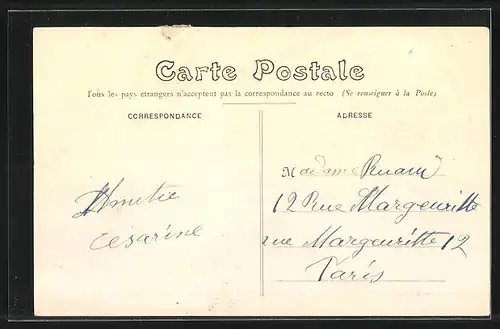 Carte Postale
Tous les pays etrangers n'acceptent pas la correspondance au recto (Se renseigner à la Poste)
CORRESPONDANCE
ADRESSE
Amitie
Césarine
Madame
12 Rue Margeuritte
rue Margeuritte 12
Paris